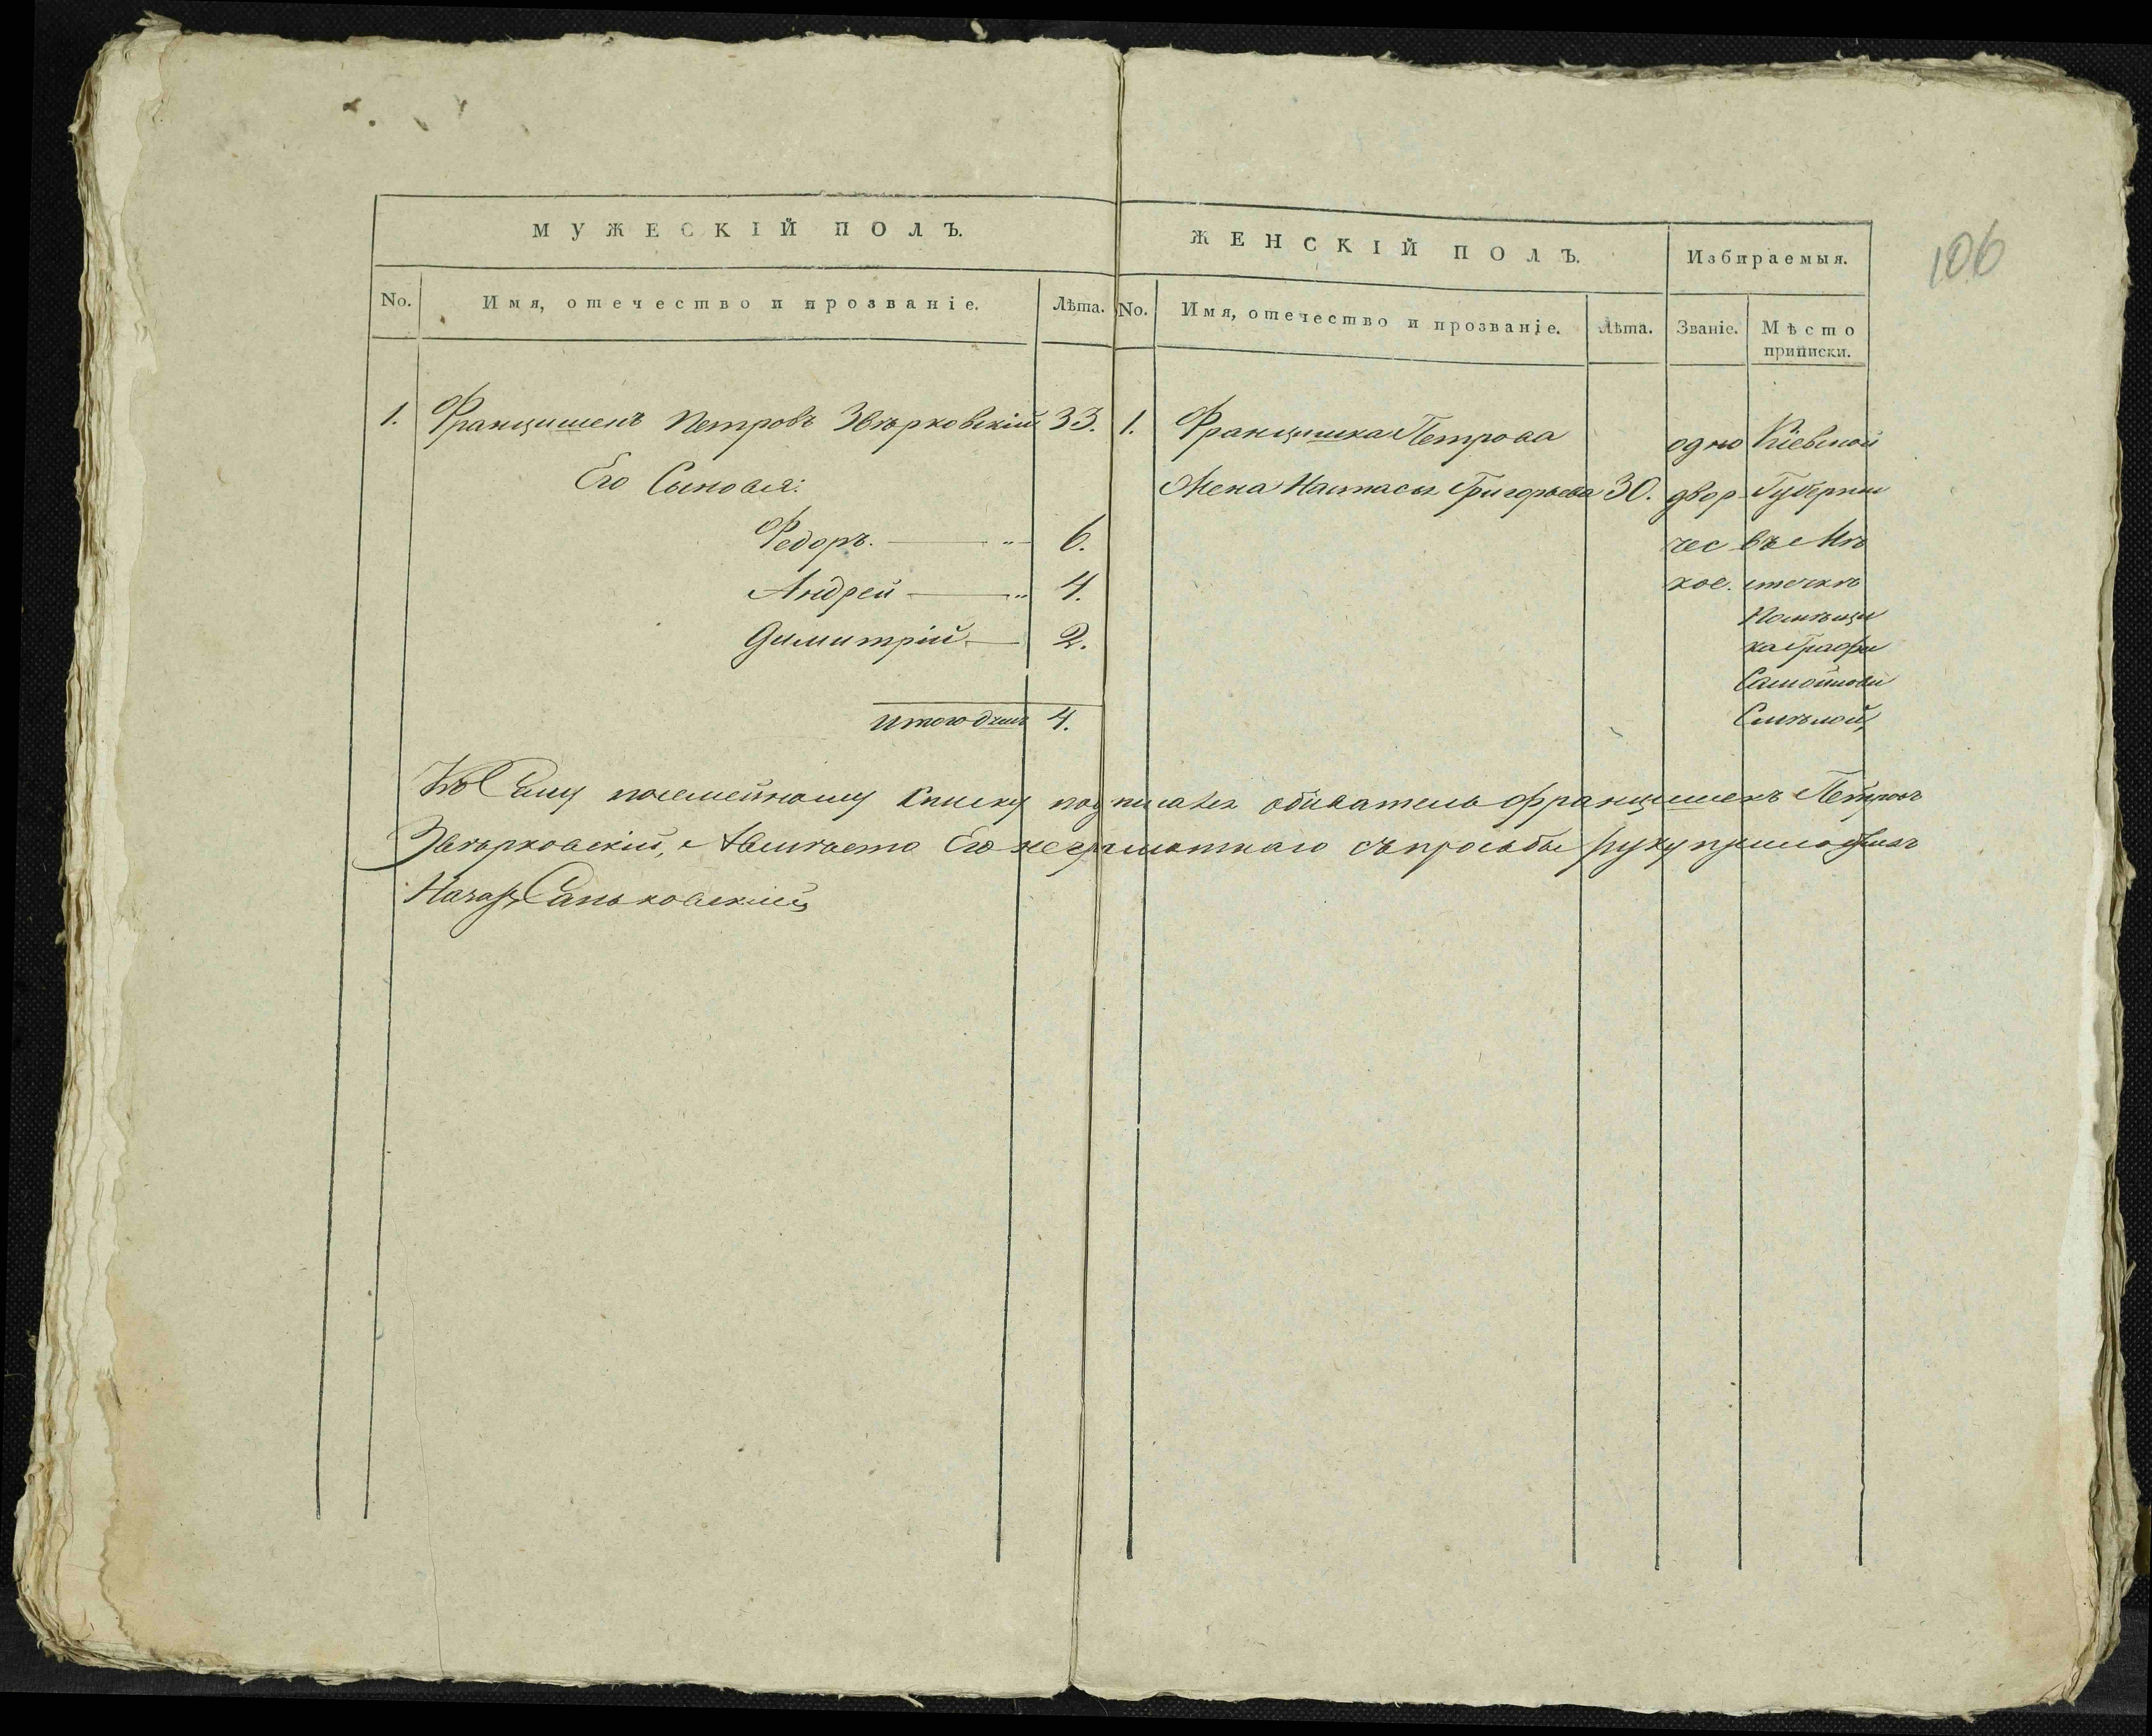 МУЖЕСКІЙ ПОЛЪ.
ЖЕНСКІЙ ПОЛЪ.
Избираемыя.
106
No. Имя, отечество и прозваніе. Лѣта.
No. Имя, отечество и прозваніе. Лѣта. Званіе. Мѣсто
приписки.
1. Францишекъ Петровъ Звѣрковскій 33.
Его Сыновья:
Федоръ. 6.
Андрей 4.
Димитрій 2.
Итого душъ 4.
1. Францишка Петрова
Жена Настасья Григорьева 30.
одно
двор
чес
кое.
Кіевской
Губерніи
въ Мѣ
стечкѣ
Помѣщи
ка Графа
Самойлова
Смѣлой,
Къ Сему посемейному Списку подписался обыватель Францишекъ Петровъ
Звѣрковскій, а вмѣсто Его неграмотнаго съ просьбы руку приложилъ
Саньковскій